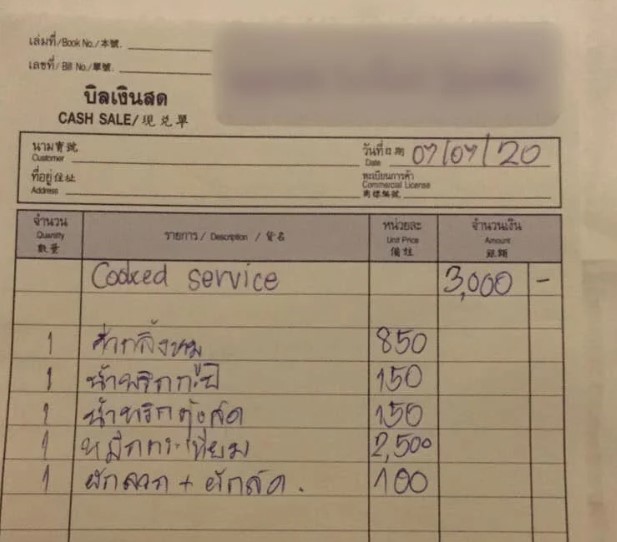 เล่มที่/Book No./本號.
เลขที่/Bill No./單號.
บิลเงินสด
CASH SALE/現兌單
นาม寶號 Customer
วันที่日期 Date 07/07/20
ที่อยู่住址 Address
ทะเบียนการค้า Commercial License 商標編號
จำนวน Quantity 數量 รายการ / Description / 貨名 หน่วยละ Unit Price 備註 จำนวนเงิน Amount 銀額
Cooked service 3,000 -
1 850
1 น้ำพริกกะปิ 150
1 น้ำพริกกุ้งสด 150
1 หมึกกระเทียม 2,500
1 ผักลวก + ผักสด . 100